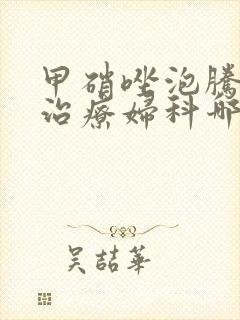 甲硝唑泡騰
治療婦科哪
吴喆華